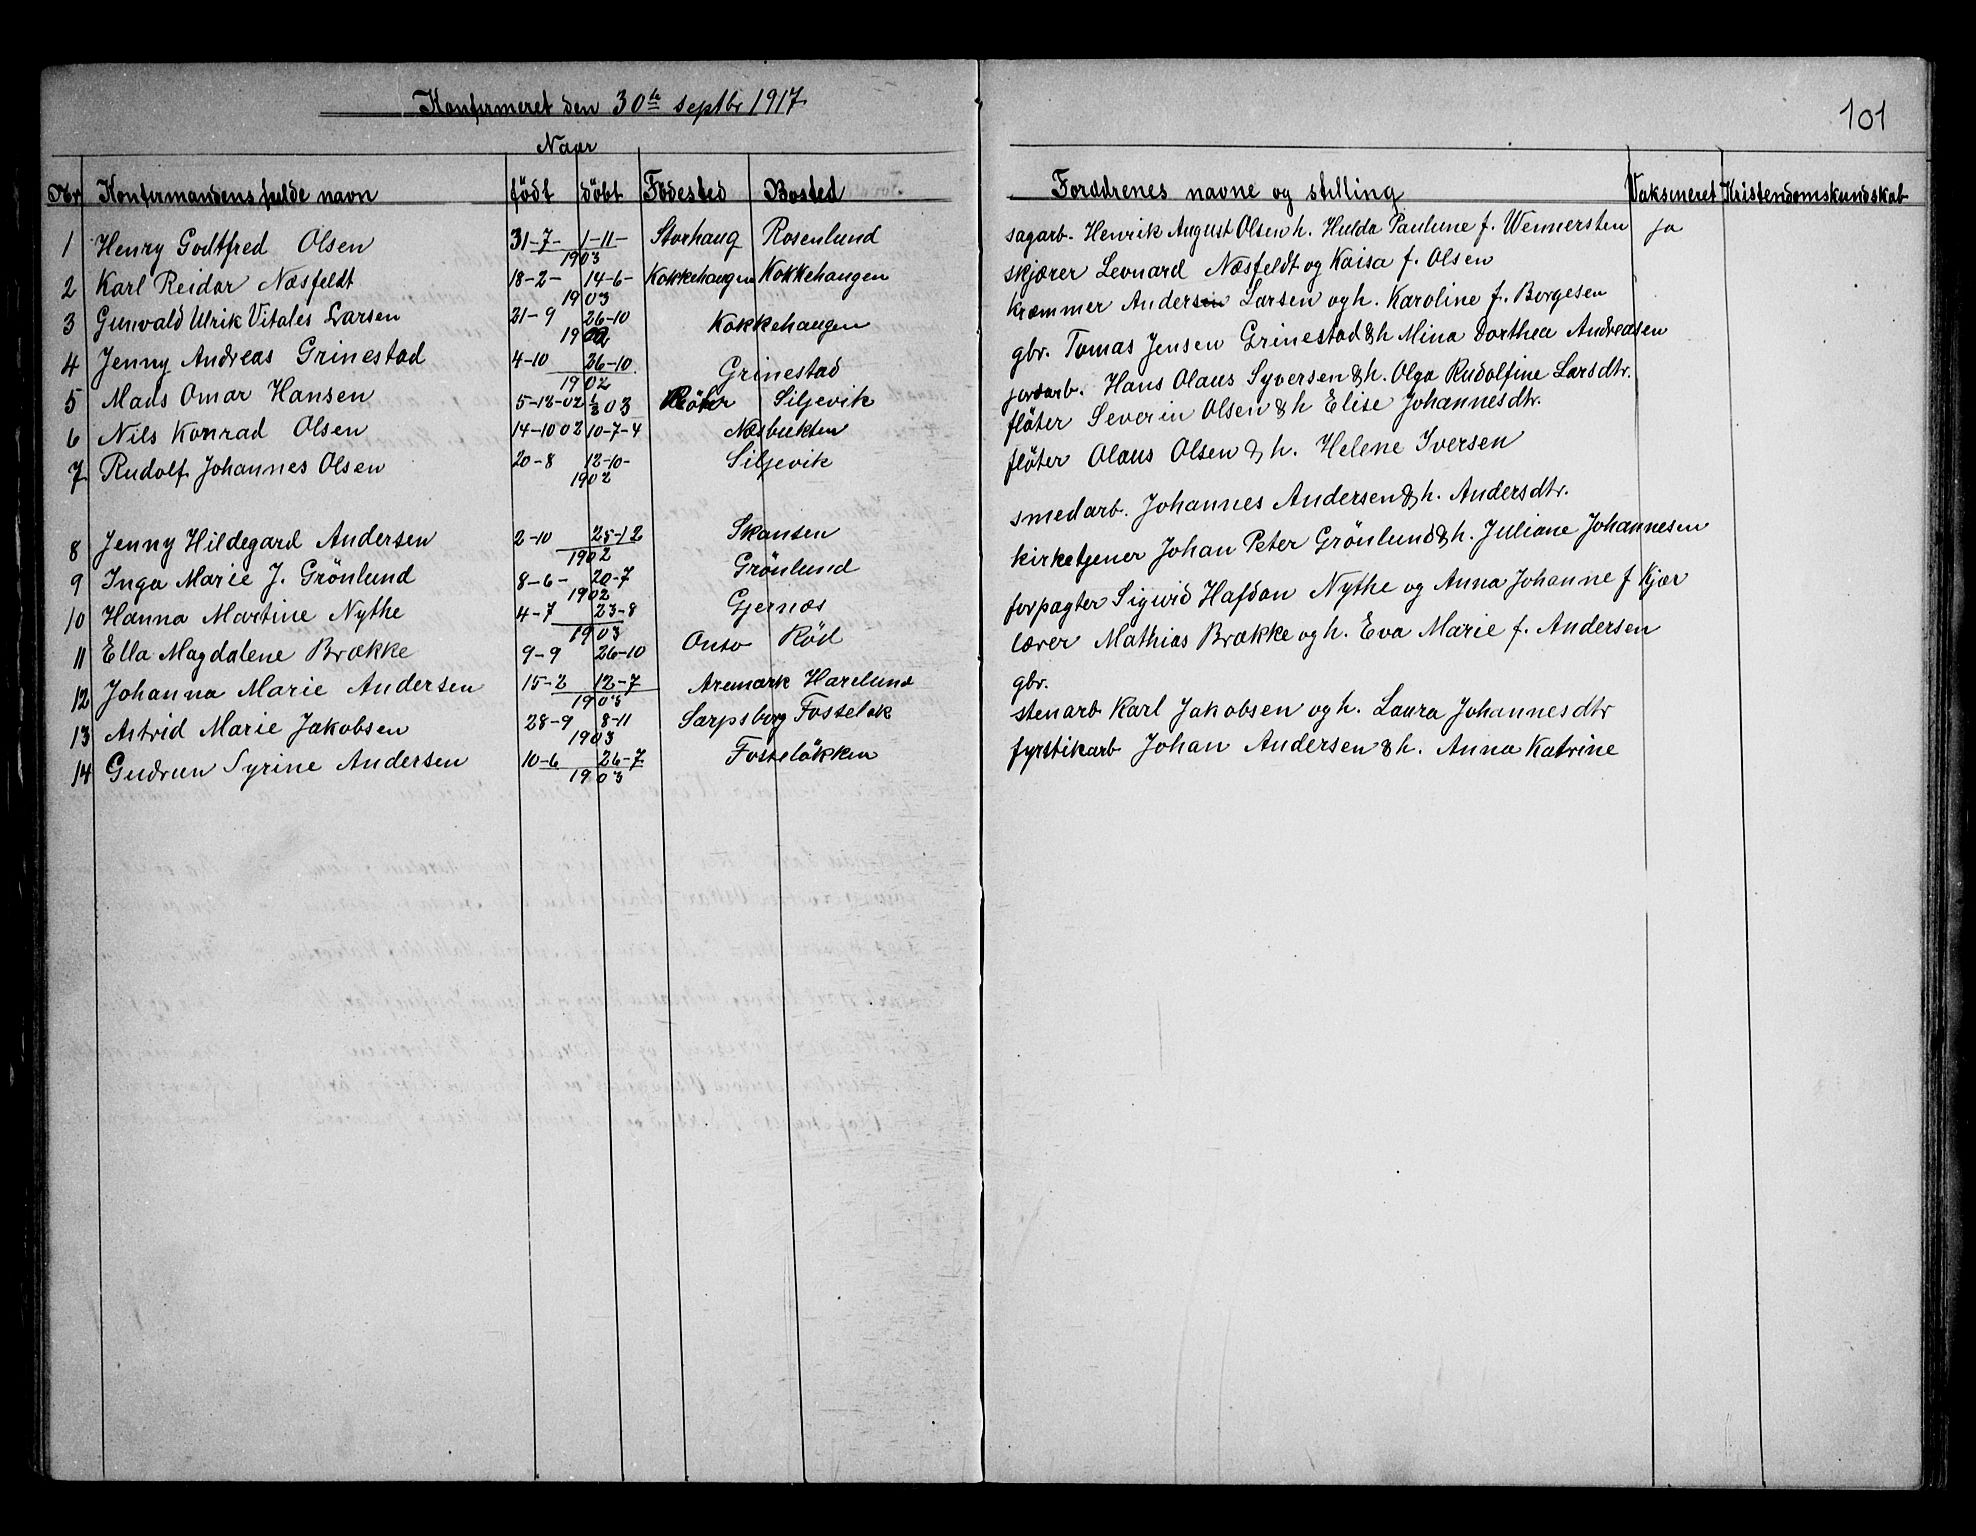 Konfirmeret den 30te septbr 1917
101
Naar
Nr Konfirmandens fulde navn födt döbt Födested Bosted Forældrenes navne og stilling Vaksineret Kristendomskundskab
1 Henry Godtfred Olsen 31-7- 1-11- 1903 Storhaug Rosenlund sagarb. Henrik August Olsen h. Hulda Pauline f. Wennersten ja
2 Karl Reidar Næsfeldt 18-2- 14-6- 1903 Kokkehaugen Kokkehaugen skjærer Leonard Næsfeldt og Kaisa f. Olsen
3 Gunvald Ulrik Vitales Larsen 21-9 26-10 1902 Kokkehaugen kræmmer Anders Larsen og h. Karoline f. Borgesen
4 Jenny Andreas Grinestad 4-10 26-10 1902 Grinestad gbr. Tomas Jensen Grinestad & h Mina Dorthea Andreasen
5 Mads Omar Hansen 5-12-02 1/3 03 Siljevik jordarb. Hans Olaus Syversen & h. Olga Rudolfine Larsdtr.
6 Nils Konrad Olsen 14-10 02 10-7-4 Næsbukten flöter Severin Olsen & h Elise Johannesdtr.
7 Rudolf Johannes Olsen 20-8 12-10- 1902 Siljevik flöter Olaus Olsen & h. Helene Iversen
8 Jenny Hildegard Andersen 2-10 25-12 1902 Skansen smedarb. Johannes Andersen & h. Andersdtr.
9 Inga Marie J. Grönlund 8-6- 20-7 1902 Grönlund kirketjener Johan Peter Grönlund & h. Juliane Johannesen
10 Hanna Martine Nythe 4-7 23-8 1903 Gjernæs forpagter Sigwid Hafdan Nythe og Anna Johanne f Kjær
11 Ella Magdalene Brække 9-9 26-10 Onso Röd lærer Mathias Brække og h. Eva Marie f. Andersen
12 Johanna Marie Andersen 15-2 12-7 1903 Aremark Harelund gbr.
13 Astrid Marie Jakobsen 28-9 8-11 1903 Sarpsborg Fosselök stenarb Karl Jakobsen og h. Laura Johannesdtr
14 Gudrun Syrine Andersen 10-6 26-7 1903 Fosselökken fyrstikarb Johan Andersen & h. Anna Katrine